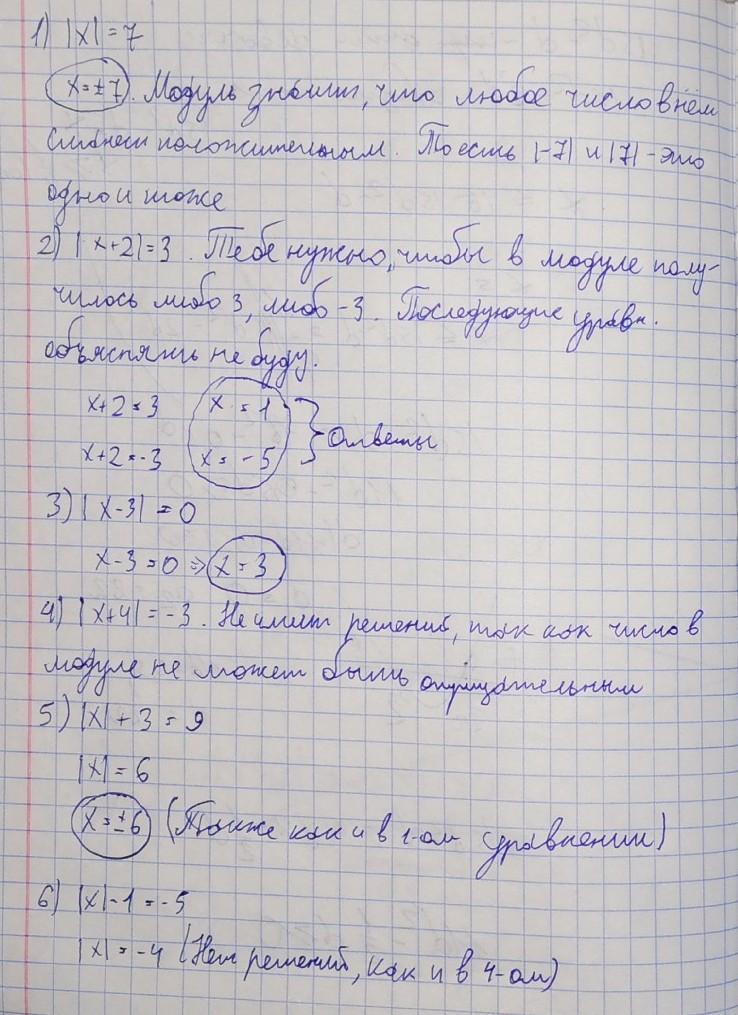 1) |x| = 7
x = ±7. Модуль значит, что любое число в нём
станет положительным. То есть |-7| и |7| - это
одно и тоже
2) |x+2| = 3. Тебе нужно, чтобы в модуле полу-
чилось либо 3, либо -3. Последующие уравн.
объяснять не буду.
x+2=3 x = 1
x+2=-3 x = -5 } Ответы
3) |x-3| = 0
x-3=0 => x=3
4) |x+4| = -3. Не имеет решений, так как число в
модуле не может быть отрицательным
5) |x| + 3 = 9
|x| = 6
x=±6 (Также как и в 1-ом уравнении)
6) |x|-1 = -5
|x| = -4 (Нет решений, как и в 4-ом)